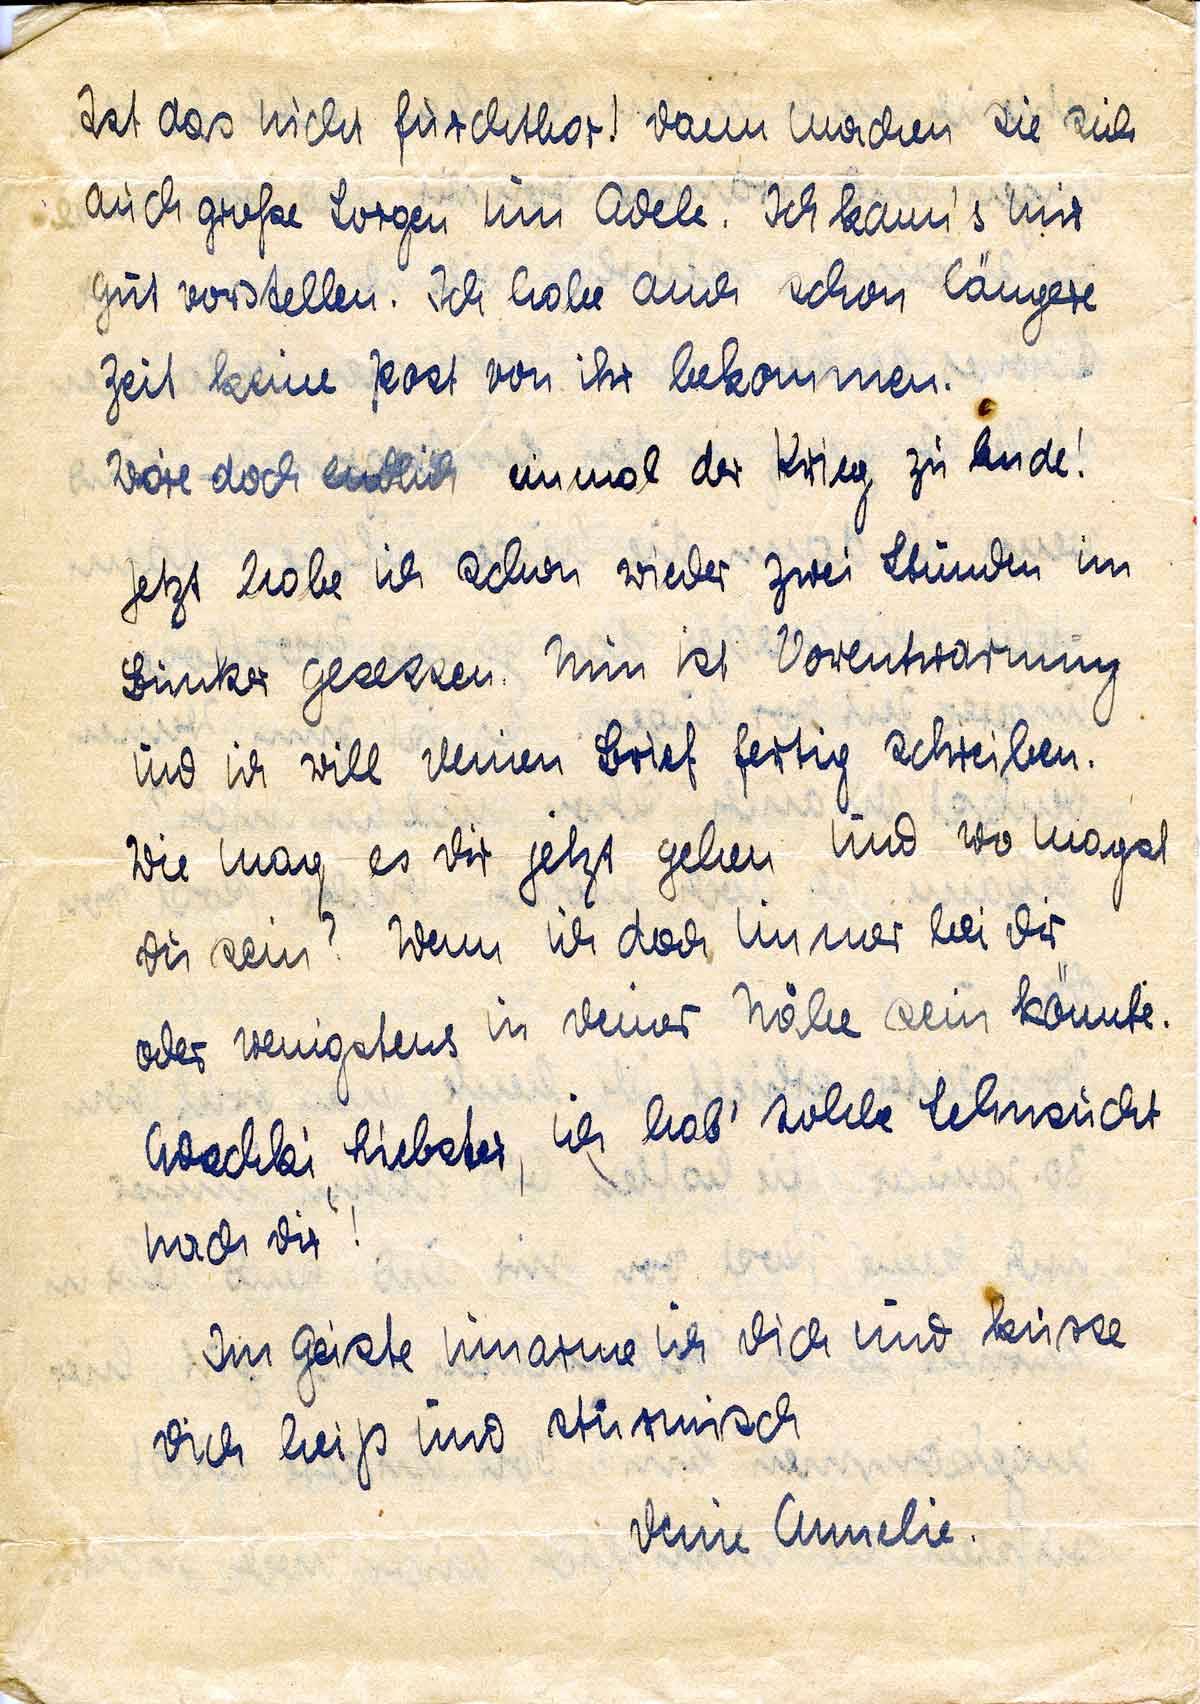 Ist das nicht furchtbar! Dann machen sie sich
auch große Sorgen um Adele. Ich kann's mir
gut vorstellen. Ich habe auch schon längere
Zeit keine Post von ihr bekommen.
Wäre doch endlich einmal der Krieg zu Ende!
Jetzt habe ich schon wieder zwei Stunden im
Bunker gesessen. Nun ist Vorentwarnung
und ich will Deinen Brief fertig schreiben.
Wie mag es Dir jetzt gehen und wo magst
Du sein? Wenn ich doch immer bei Dir
oder wenigstens in Deiner Nähe sein könnte.
Liebster, ich hab' solche Sehnsucht
nach Dir"!
Im Geiste umarme ich Dich und küsse
Dich heiß und stürmisch
Deine Annelie.